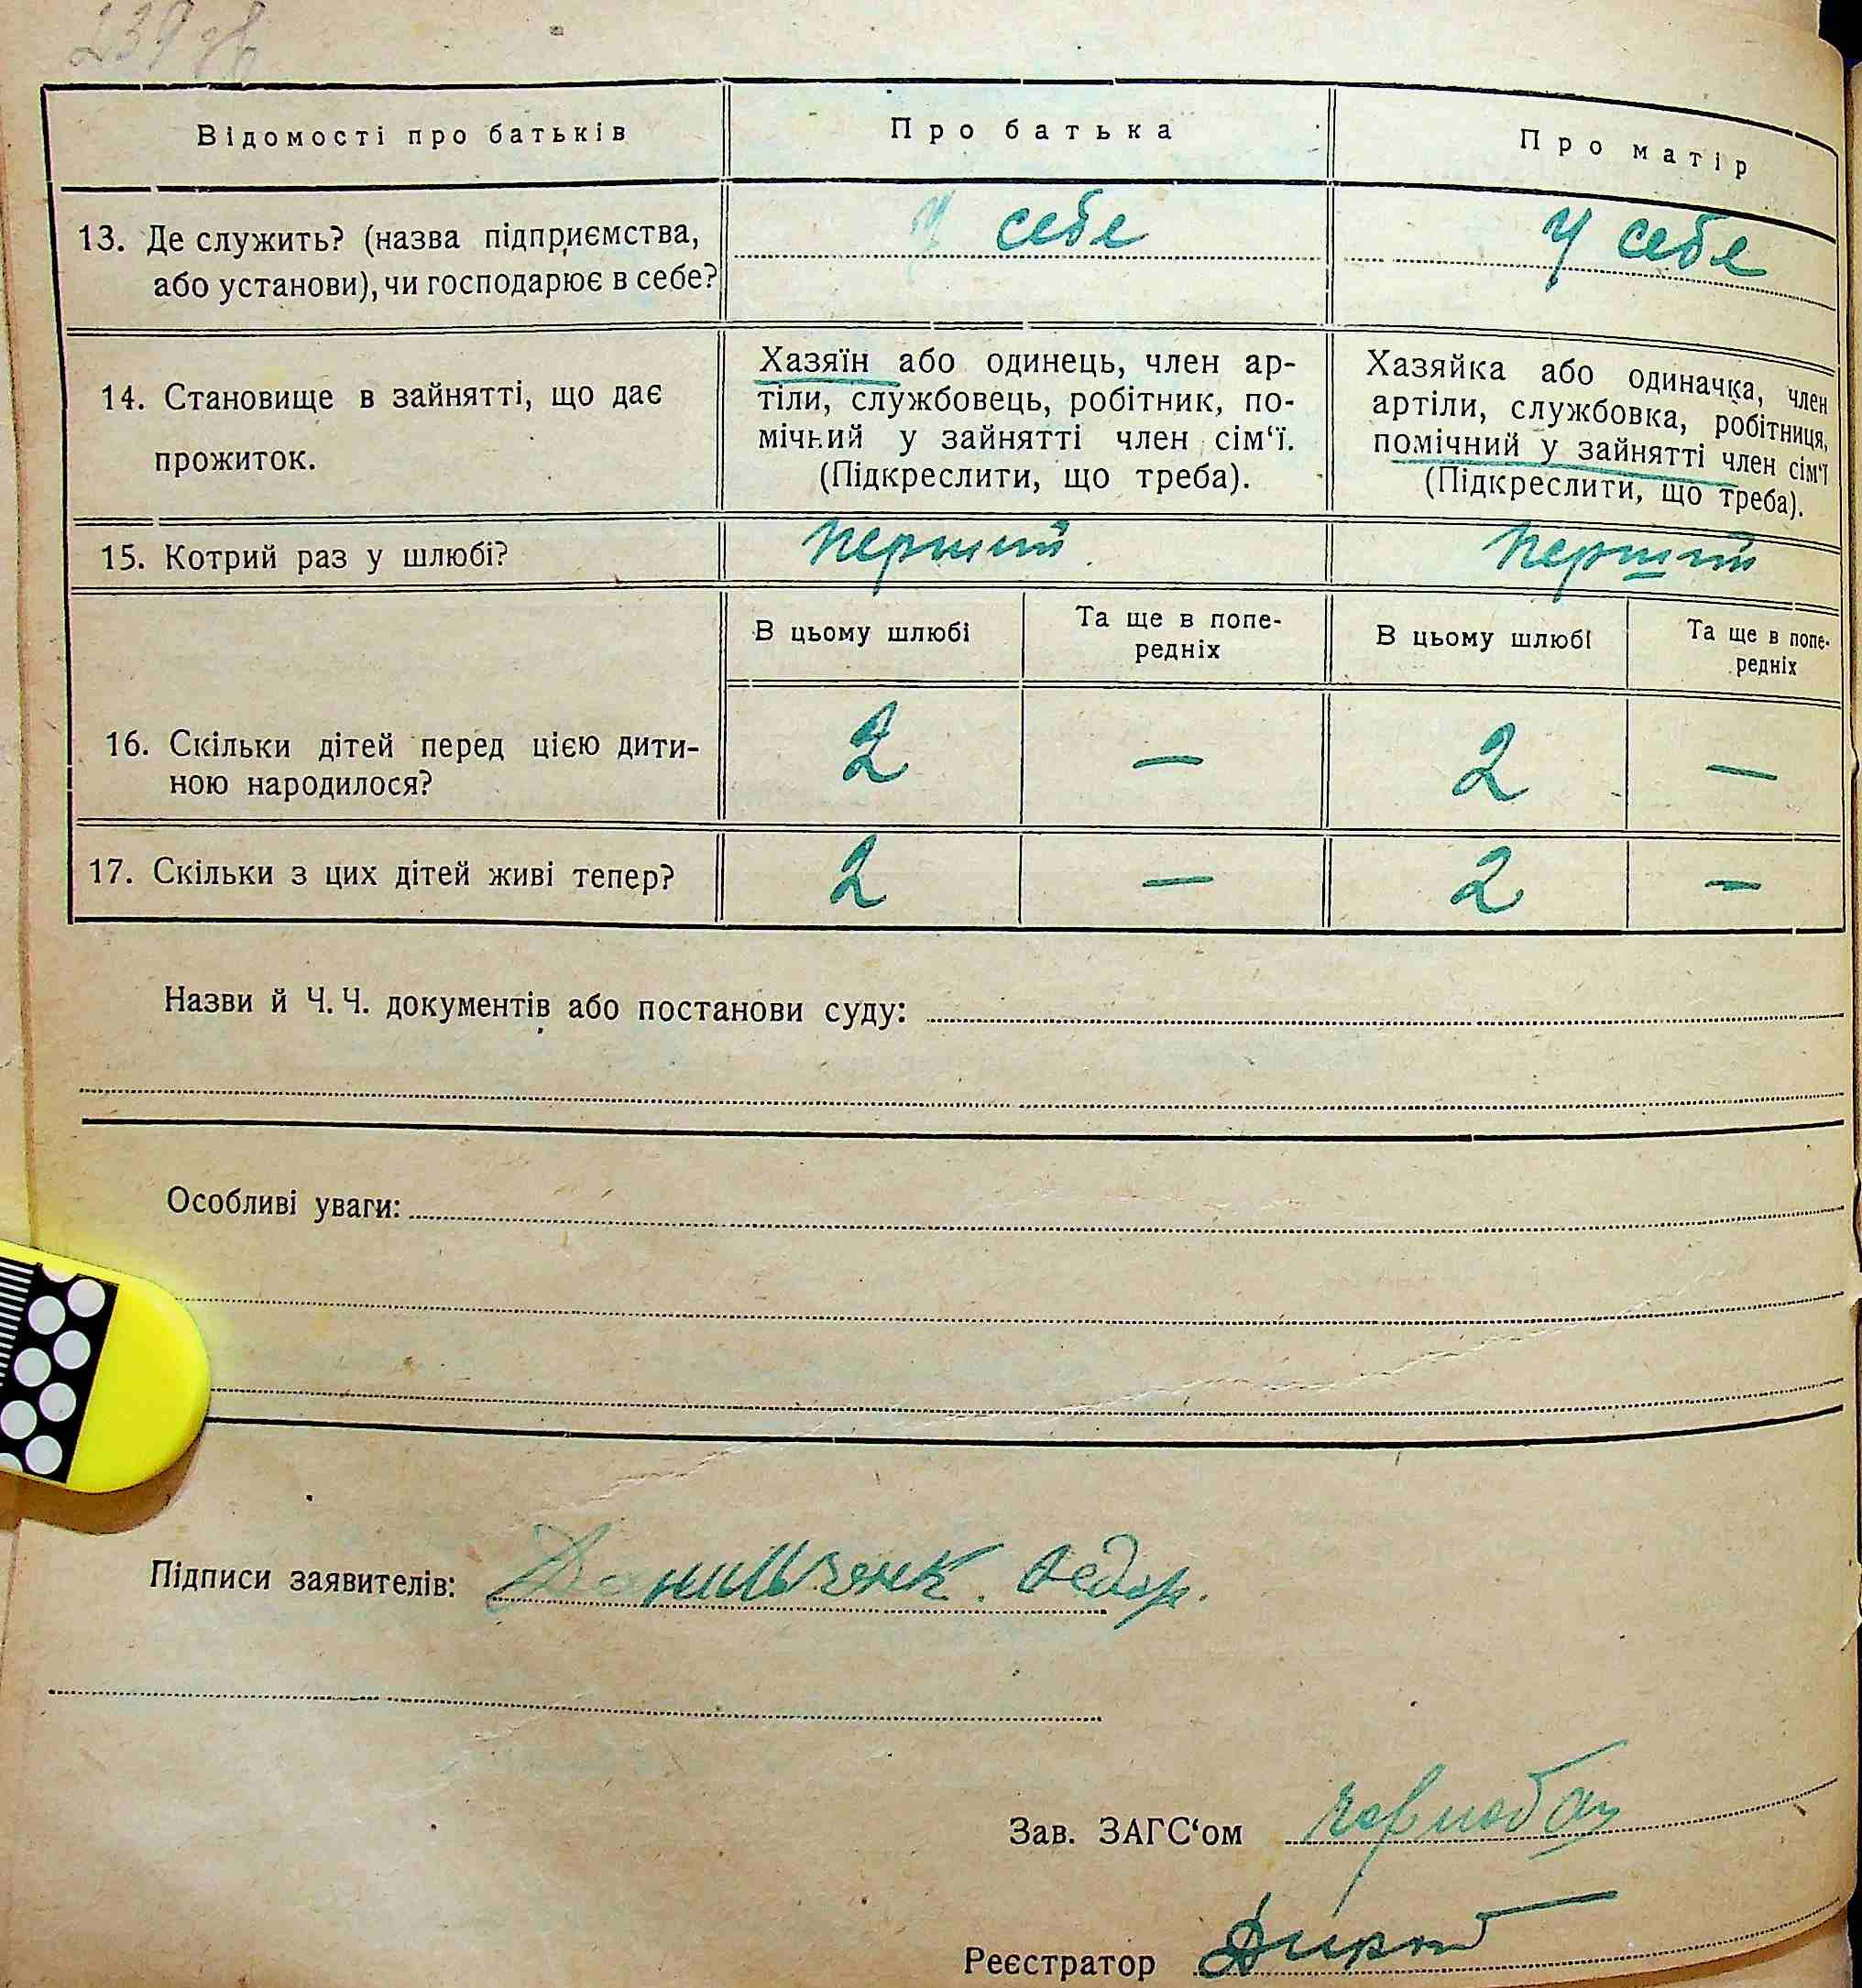 239 зв
Відомості про батьків
Про батька
Про матір
13. Де служить? (назва підприємства,
або установи), чи господарює в себе?
у себе
у себе
14. Становище в зайнятті, що дає
прожиток.
Хазяїн або одинець, член ар-
тіли, службовець, робітник, по-
мічний у зайнятті член сім‘ї.
(Підкреслити, що треба).
Хазяйка або одиначка, член
артіли, службовка, робітниця,
помічний у зайнятті член сім‘ї
(Підкреслити, що треба).
15. Котрий раз у шлюбі?
перший
перший
В цьому шлюбі
Та ще в попе-
редніх
В цьому шлюбі
Та ще в попе-
редніх
16. Скільки дітей перед цією дити-
ною народилося?
2
—
2
—
17. Скільки з цих дітей живі тепер?
2
—
2
—
Назви й Ч. Ч. документів або постанови суду:
Особливі уваги:
Підписи заявителів: Данильченк. Федор.
Зав. ЗАГС‘ом
Реєстратор